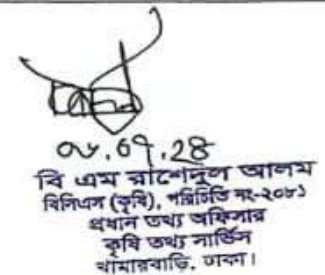 ০৮.০৭.২৪
বি এম রাশেদুল আলম
বিসিএস (কৃষি), পরিচিতি নং-২০৮১
প্রধান তথ্য অফিসার
কৃষি তথ্য সার্ভিস
খামারবাড়ি, ঢাকা।